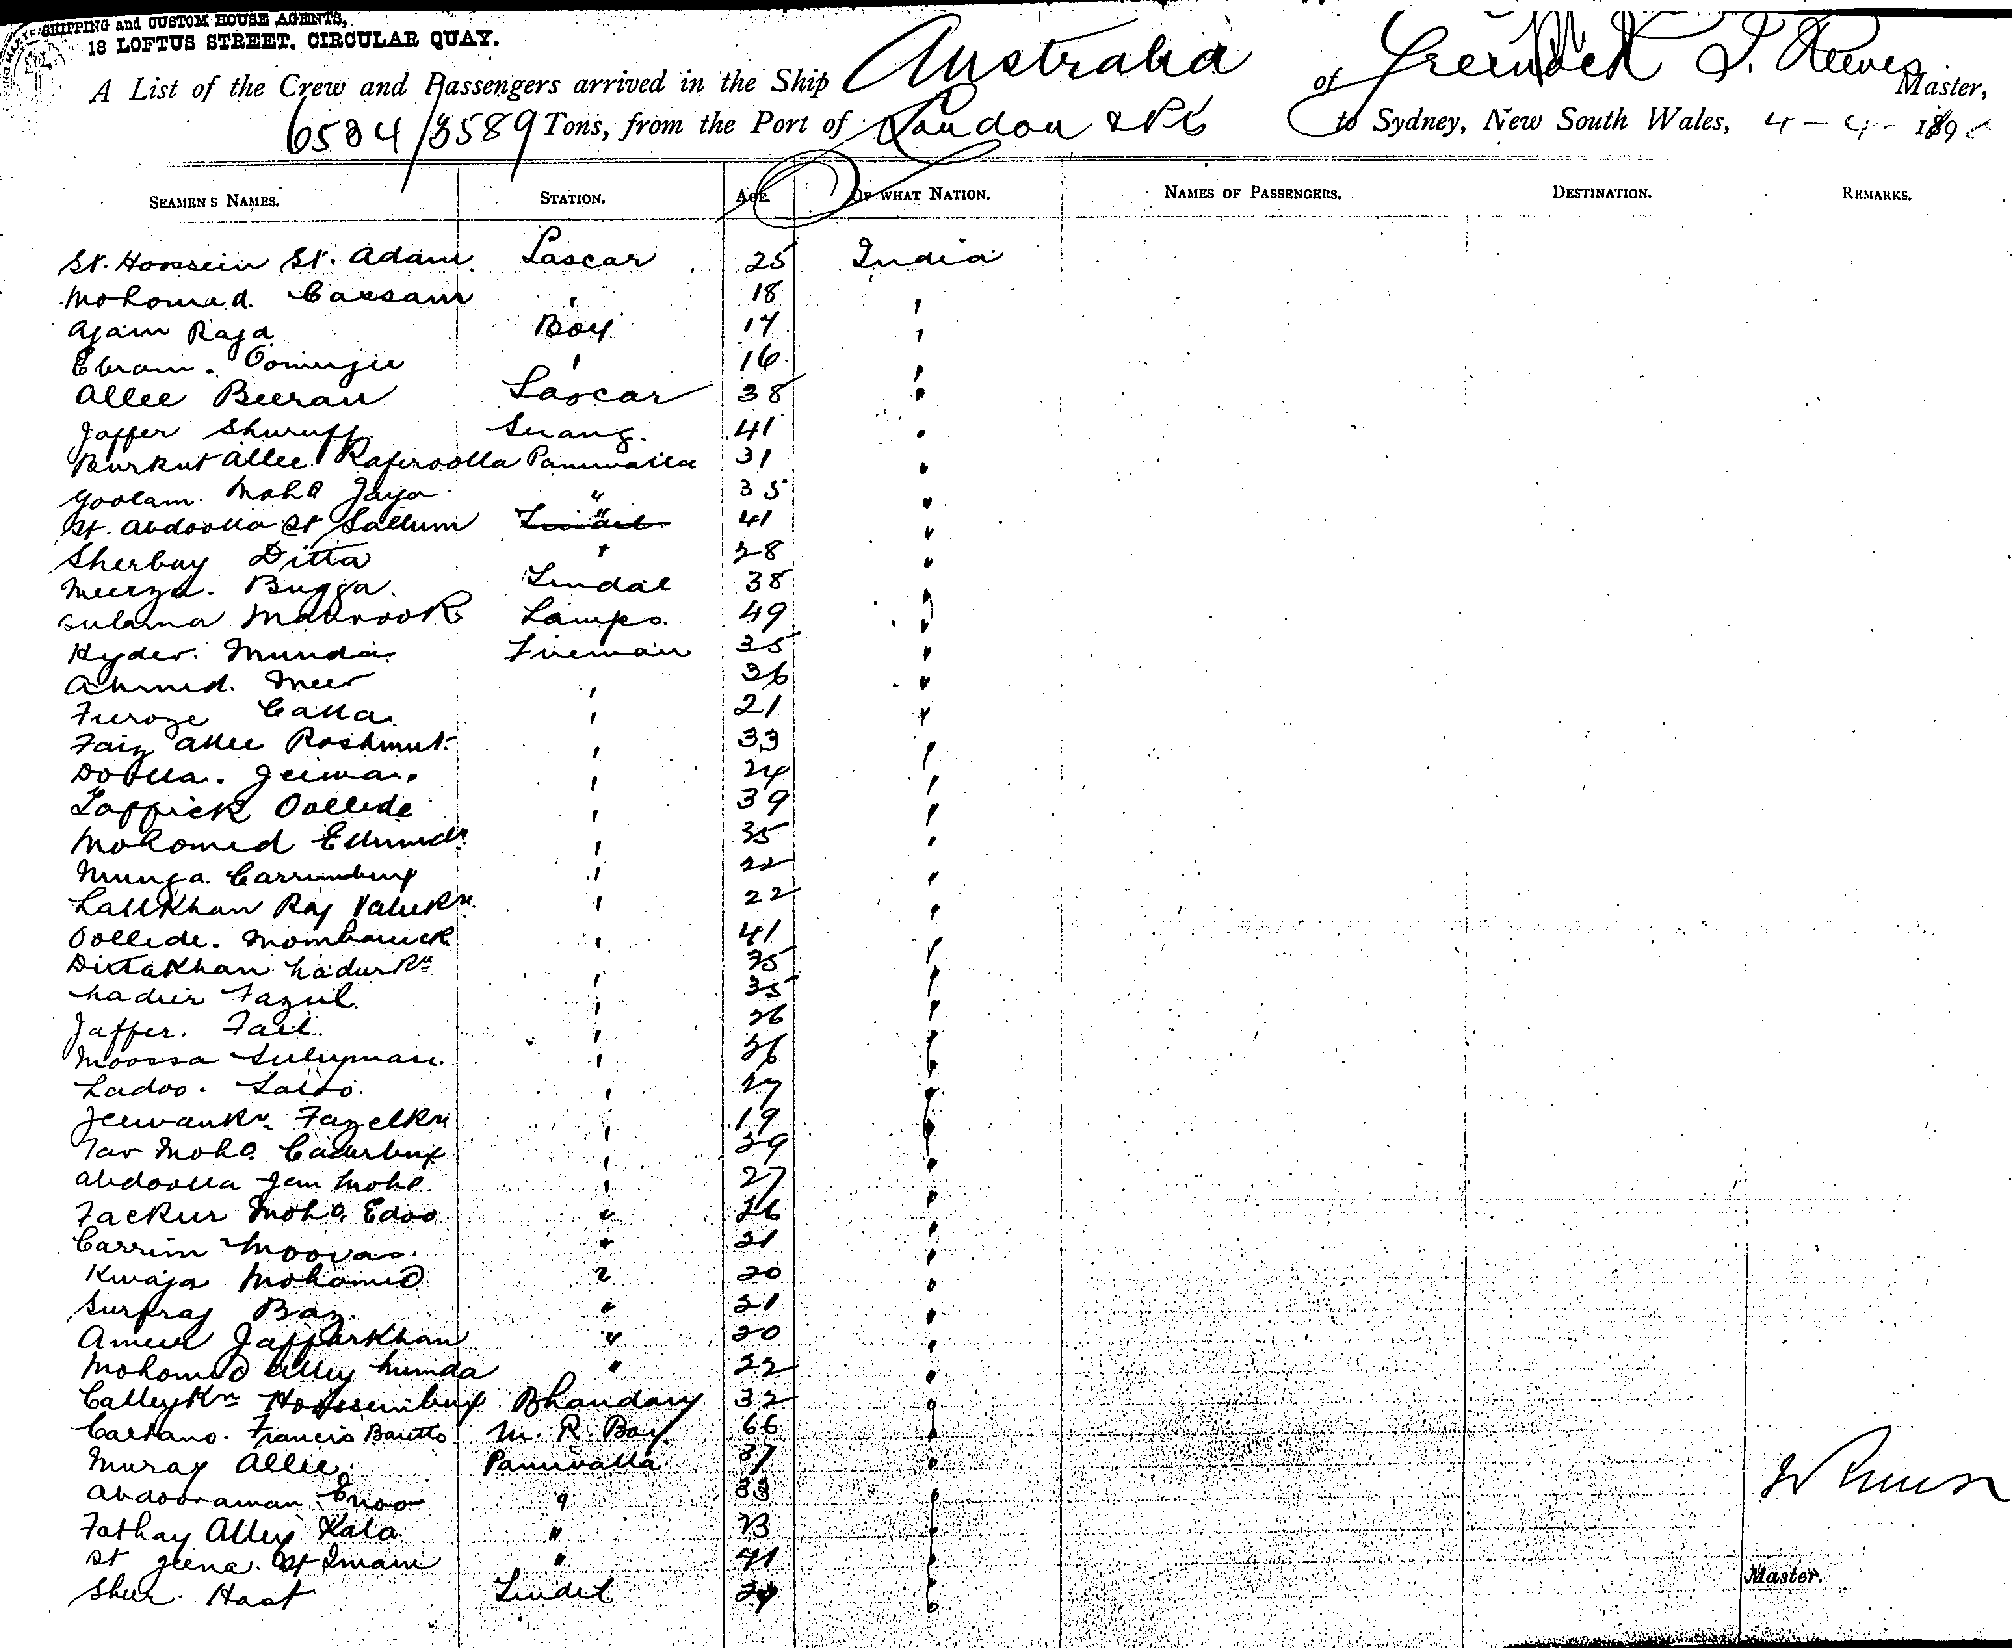 SHIPPING and CUSTOM HOUSE AGENTS,
18 LOFTUS STREET, CIRCULAR QUAY.
A List of the Crew and Passengers arrived in the Ship Australia of Greenock J. Reeves Master,
6584/3589 Tons, from the Port of London & to Sydney, New South Wales, 4 - 4 - 189
SEAMEN'S NAMES. STATION. AGE OF WHAT NATION. NAMES OF PASSENGERS. DESTINATION. REMARKS.
St. Hossein St. Adam Lascar 25 India
Mohomed Cassam " 18 "
Ajam Raja Boy 17 "
Ebram Oomerjee " 16 "
Allee Beeran Lascar 38 "
Jaffer Shuruff Serang 41 "
Burkut Allee Panniwalla 31 "
Goolam Mohd Jaya " 35 "
St. Abdoolla St Sallum " 41 "
Sherbay Ditta " 28 "
Meerza Bugga Tindal 38 "
Sulama Mabrook Lamps 49 "
Hyder Munda Fireman 35 "
Ahmed Meer " 36 "
Feroze Calla " 21 "
Faiz Allee Roshmut " 33 "
Dolla Jeewa " 24 "
Taffick Oollede " 39 "
Mohomed " 35 "
Munga Carrimbux " 22 "
Lallkhan Raj " 22 "
Oollede Mombarrick " 41 "
Dittakhan " 35 "
Nadir Fazul " 35 "
Jaffer " 26 "
Moossa Suleyman " 36 "
Ladoo " 27 "
Jeewankn Fazelkn " 19 "
Mohd Caderbux " 39 "
Abdoolla Jan Mohd " 27 "
Fackur Mohd Edoo " 26 "
Carrim Moosa " 21 "
Kwaja Mohomed " 20 "
Surfraj Baz " 21 "
Ameer Jafferkhan " 20 "
Mohomed Alley " 22 "
Calleykn Hosseinbux Bhandary 32 "
Caetano Francis Baretto M. R. Boy 66 "
Muraj Allee Panniwalla 37 "
Abdooraman " 33 "
Fathay Alley Kala " 23 "
St Jeena St Imam " 41 "
Sher Hast Tindel 29 "
Master.